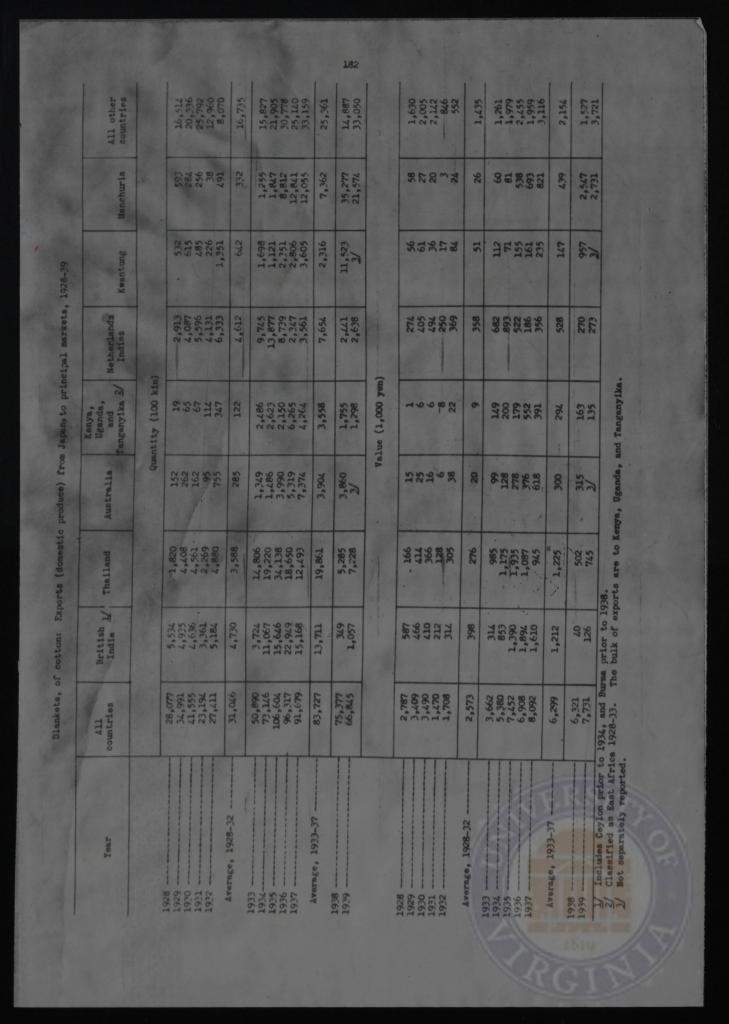 182
Blankets, of cotton: Exports (domestic produce) from Japan to principal markets, 1928-39
Year All countries British India 1/ Thailand Australia Kenya, Uganda, and Tanganyika 2/ Netherlands Indies Kwantung Manchuria All other countries
Quantity (100 kin)
1928 28,077 5,534 1,820 152 19 2,913 532 593 16,514
1929 34,991 4,935 4,408 262 65 4,087 615 284 20,336
1930 41,555 4,636 4,561 162 67 5,596 485 256 25,792
1931 23,194 3,361 2,269 95 114 4,131 226 38 12,960
1932 27,411 5,184 4,880 755 347 6,333 1,351 491 8,070
Average, 1928-32 31,046 4,730 3,588 285 122 4,612 642 332 16,735
1933 50,890 3,724 14,806 1,349 2,486 9,745 1,698 1,255 15,827
1934 73,146 11,067 19,220 1,486 2,623 13,877 1,121 1,847 21,905
1935 106,604 15,646 34,138 3,990 2,150 8,739 2,351 8,812 30,778
1936 96,317 22,949 18,650 5,319 6,265 2,347 2,806 12,841 25,140
1937 91,679 15,168 12,493 7,374 4,264 3,561 3,605 12,055 33,159
Average, 1933-37 83,727 13,711 19,861 3,904 3,558 7,654 2,316 7,362 25,361
1938 75,377 349 5,285 3,860 1,755 2,441 11,523 35,277 14,887
1939 66,845 1,057 7,228 3/ 1,298 2,638 3/ 21,574 33,050
Value (1,000 yen)
1928 2,787 587 166 15 1 274 56 58 1,630
1929 3,409 466 414 25 6 405 61 27 2,005
1930 3,490 410 366 16 6 494 36 20 2,142
1931 1,470 212 128 6 8 250 17 3 846
1932 1,708 314 305 38 22 369 84 24 552
Average, 1928-32 2,573 398 276 20 9 358 51 26 1,435
1933 3,662 314 985 99 149 682 112 60 1,261
1934 5,380 853 1,175 128 200 893 71 81 1,979
1935 7,452 1,390 1,935 278 179 522 155 538 2,455
1936 6,908 1,894 1,087 376 552 186 161 693 1,959
1937 8,092 1,610 945 618 391 356 235 821 3,116
Average, 1933-37 6,299 1,212 1,225 300 294 528 147 439 2,154
1938 6,321 40 502 315 163 270 957 2,547 1,527
1939 7,731 126 745 3/ 135 273 3/ 2,731 3,721
1/ Includes Ceylon prior to 1934, and Burma prior to 1938.
2/ Classified as East Africa 1928-33. The bulk of exports are to Kenya, Uganda, and Tanganyika.
3/ Not separately reported.
UNIVERSITY OF VIRGINIA
1819